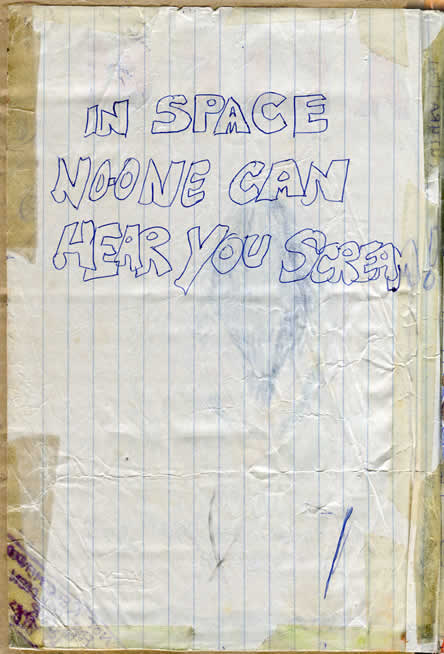 IN SPACE
NO-ONE CAN
HEAR YOU SCREAM!